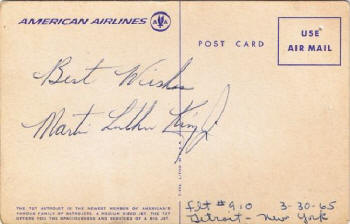 AMERICAN AIRLINES AA
POST CARD
USE
AIR MAIL
Best Wishes
Martin Luther King Jr
THE 727 ASTROJET IS THE NEWEST MEMBER OF AMERICAN'S
FAMOUS FAMILY OF ASTROJETS. A MEDIUM SIZED JET, THE 727
OFFERS YOU THE SPACIOUSNESS AND SERVICES OF A BIG JET.
flt #910 3-30-65
Detroit - New York